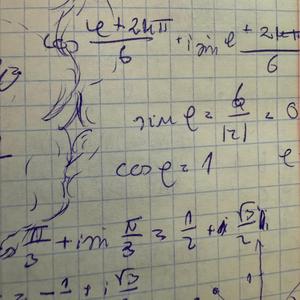 cos φ+2kπ/6 + i sin φ+2kπ/6
sin φ = b/|z| = 0
cos φ = 1 φ
π/3 + i sin π/3 = 1/2 + i √3/2
= -1 + i √3